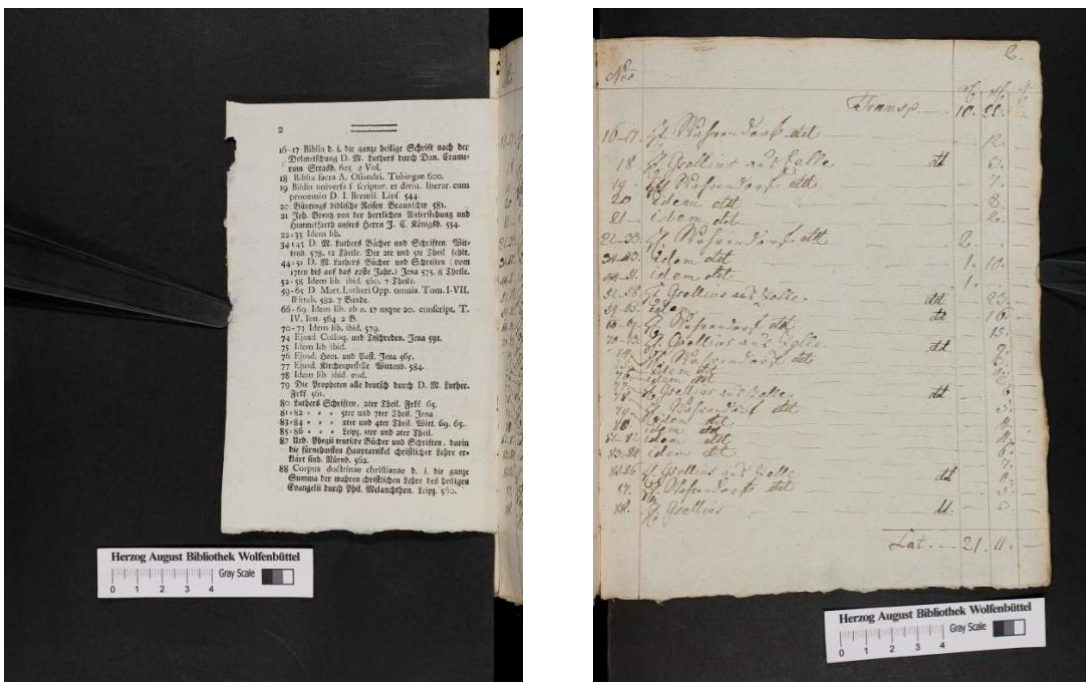 2
16-17 Biblia d. i. die ganze heilige Schrift nach der
Dolmetschung D. M. Luthers durch Dan. Crame-
rum Strasb. 625 2 Vol.
18 Biblia sacra A. Osiandri. Tubingae 600.
19 Biblia universa & scriptur. et divin. literar. cum
prooemio D. I. Lipf 544.
20 Büntings biblische Reisen Braunschw 581.
21 Joh. Brentz von der herrlichen Auferstehung und
Himmelfarth unsers Herrn J. C. Königsb. 534.
22-33 Idem lib.
34-43 D. M. Luthers Bücher und Schriften Wit-
tenb. 578. 12 Theile. Der 2te und 5te Theil fehlt.
44-51 D. M. Luthers Bücher und Schriften (vom
17ten bis auf das Jahr.) Jena 575. 8 Theile.
52-58 Idem lib. ibid. 560. 7 Theile.
59-65 D. Mart. Lutheri Opp. omnia Tom. I-VII.
Witteb. 582. 7 Bände.
66-69 Idem lib. ab a. 17 usque 20. conscript. T.
IV. Ien. 564 2 B.
70-73 Idem lib. ibid. 579.
74 Ejusd Colloq. und Tischreden. Jena 591.
75 Idem lib ibid.
76 Ejusd. Hom. und Past. Jena 565.
77 Ejusd. Kirchenpostille Wittenb. 584.
78 Idem lib. ibid. eod.
79 Die Propheten alle deutsch durch D. M. Luther.
Frkf. 561.
80 Luthers Schriften, 2ter Theil. Frkf 65.
81-82 - - - 5ter und 7ter Theil. Jena
83-84 - - - 2ter und 4ter Theil. Witt. 69. 65.
85-86 - - - Leipz. 1ter und 2ter Theil.
87 Urb. Rhegii teutsche Bücher und Schriften, darin
die fürnehmsten Hauptartikel christlicher Lehre er-
klärt sind. Nürnb. 562.
88 Corpus doctrinae christianae d. i. die ganze
Summa der wahren christlichen Lehre des heiligen
Evangelii durch Phil. Melanchthon. Leipz. 560.
Herzog August Bibliothek Wolfenbüttel
Gray Scale
0 1 2 3 4
2.
Nro
Transp. 10. 21.
16-17. H. Wahrendorf dt 12.
18 H. Gsellius aus Celle dt 6.
19 H. Wahrendorf dt 7.
20 idem dt 8.
21 idem dt 2.
22-33. H. Wahrendorf dt 2.
34-43. idem dt 1. 10.
44-51. idem dt 1.
52-58. H. Gsellius aus Celle dt
59-65. idem dt 16.
66-69. H. Wahrendorf dt 15.
70-73. H. Gsellius aus Celle dt 9.
H. Wahrendorf dt
idem dt
idem dt
H. Gsellius aus Celle dt
79. H. Wahrendorf dt
80. idem dt
81-82. idem dt
83-84. idem dt
85-86. H. Gsellius aus Celle dt
87. H. Wahrendorf dt
88. H. Gsellius dt
Lat. 21. 11.
Herzog August Bibliothek Wolfenbüttel
Gray Scale
0 1 2 3 4